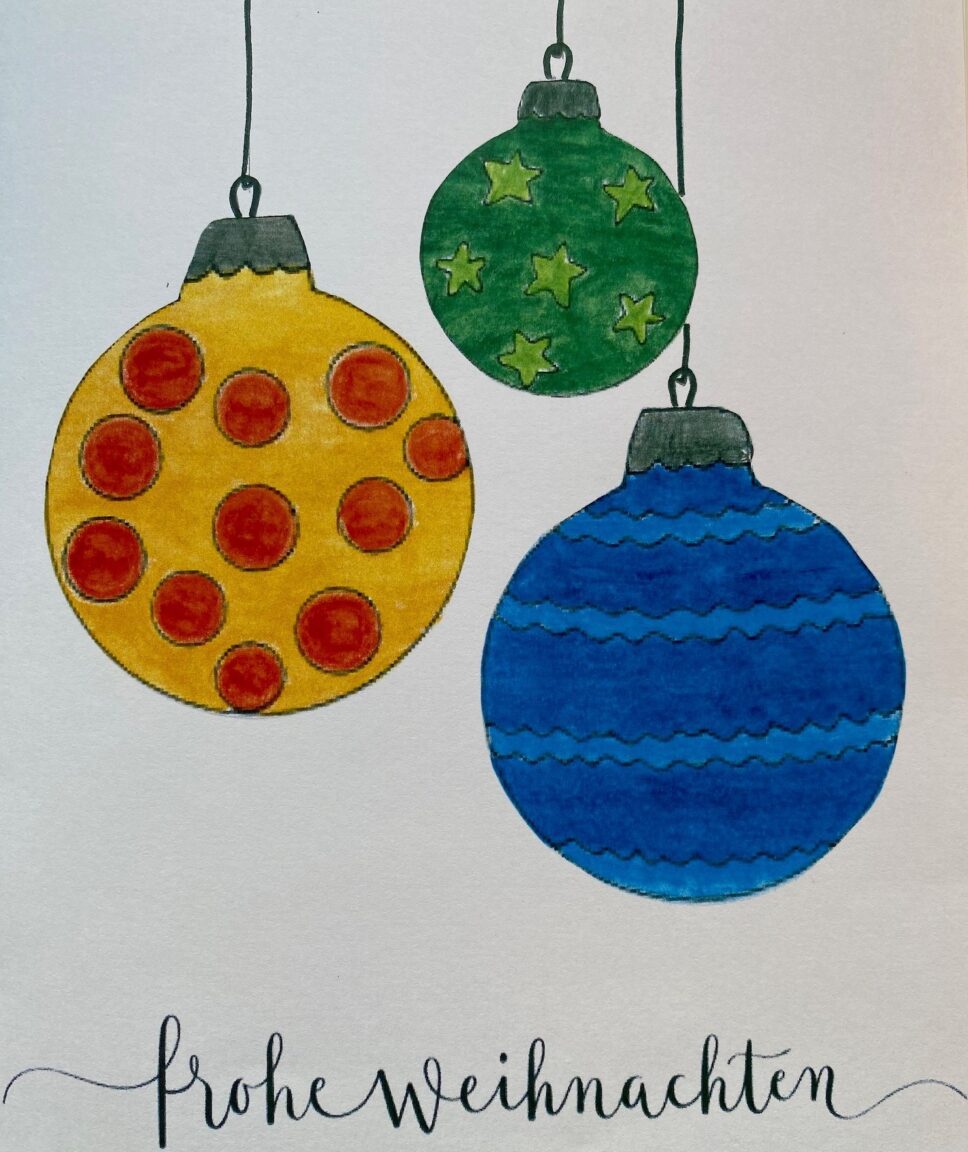 frohe Weihnachten